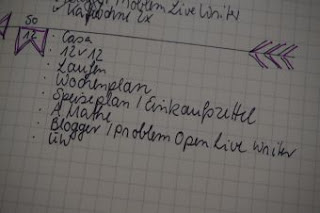 Problem Live Writer
2x
50
12
· Casa
· 12 v 12
· Laufen
· Wochenplan
· Speiseplan / Einkaufszettel
· A Mathe
· Blogger / Problem Open Live Writer
· ÜW